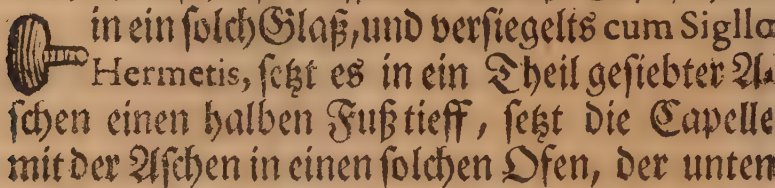 in ein ſolch Glaß, und verſiegelts cum Sigllo
Hermetis, ſetzt es in ein Theil geſiebter A-
ſchen einen halben Fuß tieff, ſetzt die Capelle
mit der Aſchen in einen ſolchen Ofen, der unten